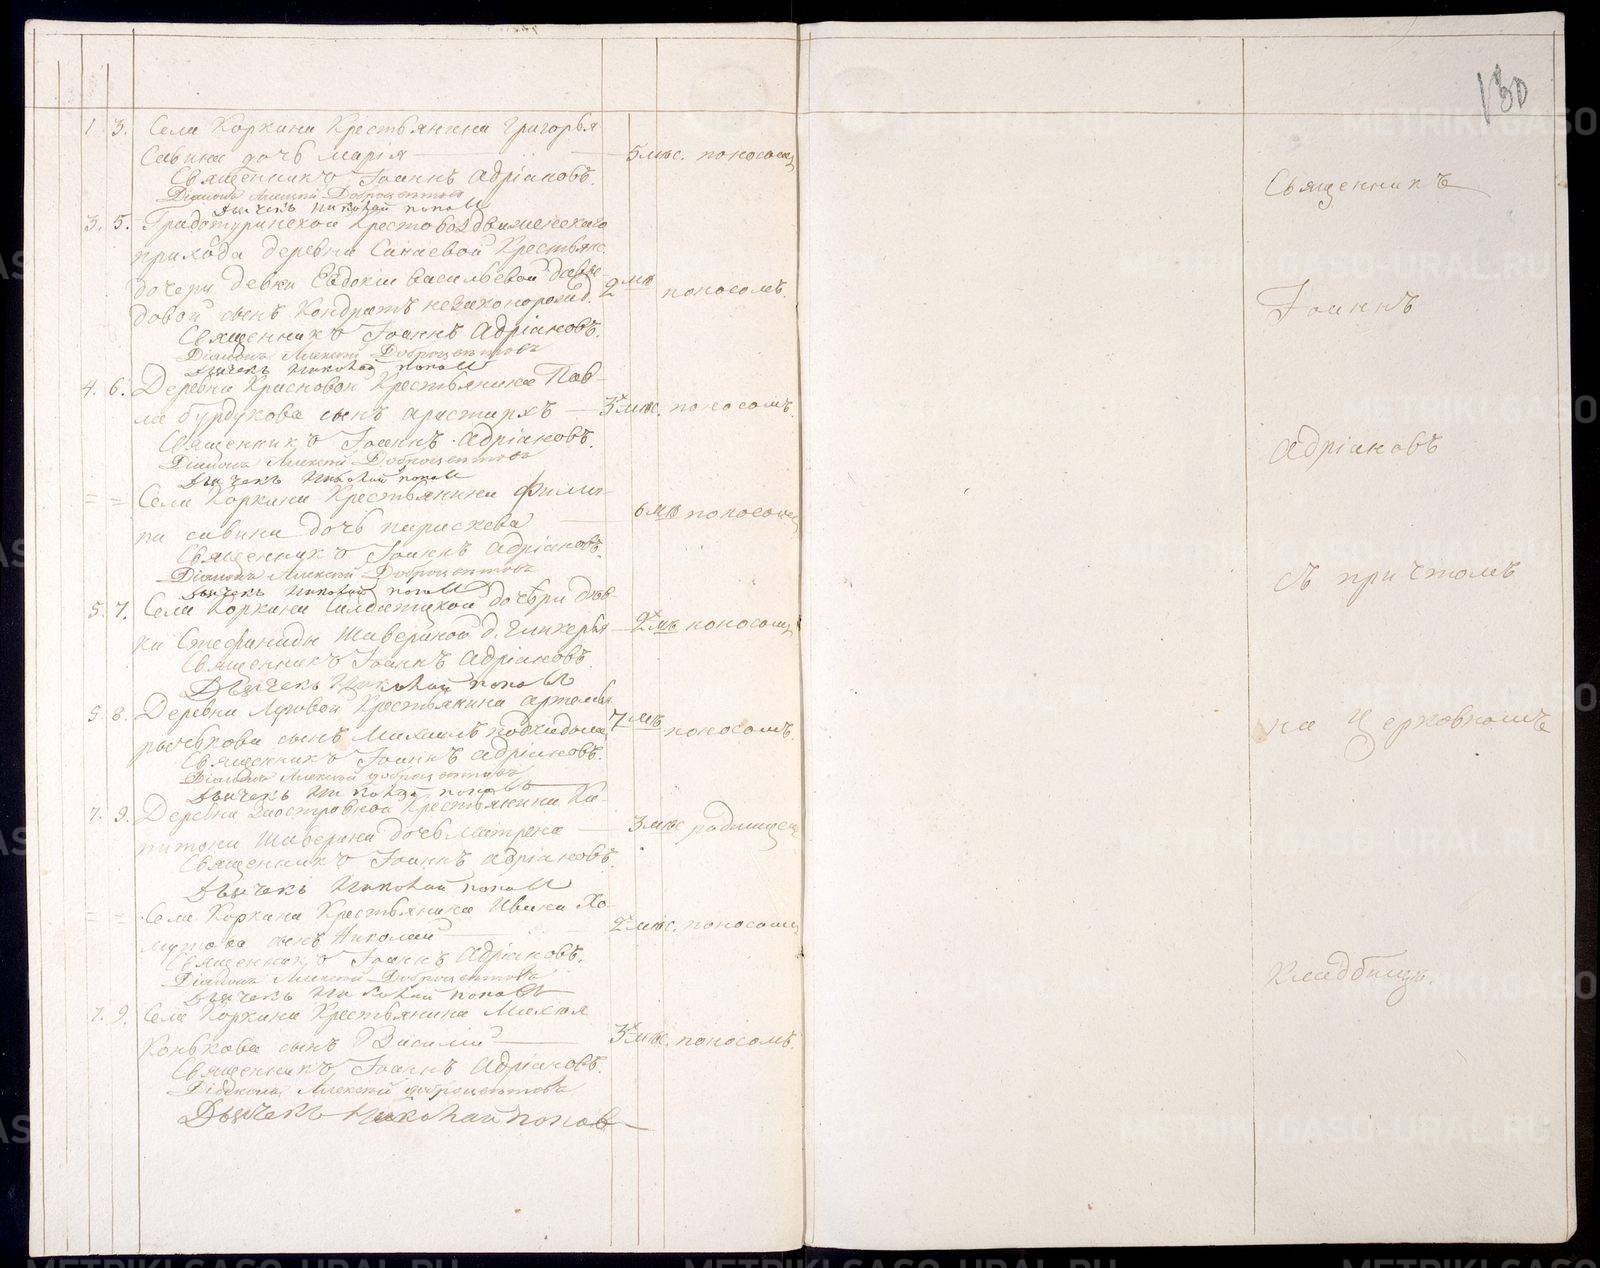 130
1. 3. Села Коркина Крестьянина Григорья
Савина дочь Марія 5 мѣс. поносомъ
Священникъ Іоаннъ Адріановъ.
Діаконъ Алексѣй Доброцвѣтовъ
Дьячекъ Николай Поповъ
3. 5. Градотуринской Крестовоздвиженскаго
прихода деревни Санаевой Крестьянс.
дочери девки Евдокіи Васильевой Давы-
довой сынъ Кондратъ незаконорожд. 2 мѣ поносомъ.
Священникъ Іоаннъ Адріановъ.
Діаконъ Алексѣй Доброцвѣтовъ
Дьячекъ Николай Поповъ
4. 6. Деревни Красновой Крестьянина Пав-
ла Бурдукова сынъ Аристархъ 3х мѣс. поносомъ.
Священникъ Іоаннъ Адріановъ.
Діаконъ Алексѣй Доброцвѣтовъ
Дьячекъ Николай Поповъ
= = Села Коркина Крестьянина Филип-
па Савина дочь Параскева 6 мѣ поносомъ
Священникъ Іоаннъ Адріановъ.
Діаконъ Алексѣй Доброцвѣтовъ
Дьячекъ Николай Поповъ
5. 7. Села Коркина Салдатской дочери дѣв-
ки Стефаниды Шавериной д. Гликерья 2х мѣ поносомъ
Священникъ Іоаннъ Адріановъ.
Дьячекъ Николай Поповъ
5. 8. Деревни Луговой Крестьянина Артемья
сынъ Михаилъ 7 мѣ поносомъ.
Священникъ Іоаннъ Адріановъ.
Діаконъ Алексѣй Доброцвѣтовъ
Дьячекъ Николай Поповъ
7. 9. Деревни Заостровной Крестьянина Ка-
питона Шаверина дочь Матрена 3 мѣс родимцемъ
Священникъ Іоаннъ Адріановъ.
Дьячекъ Николай Поповъ
= = Села Коркина Крестьянина Ивана Хо-
мутова сынъ Николай 2х мѣс. поносомъ
Священникъ Іоаннъ Адріановъ.
Діаконъ Алексѣй Доброцвѣтовъ
Дьячекъ Николай Поповъ
7. 9. Села Коркина Крестьянина
Конькова сынъ Василій 3х мѣс. поносомъ.
Священникъ Іоаннъ Адріановъ.
Діаконъ Алексѣй Доброцвѣтовъ
Дьячекъ Николай Попов
Священникъ
Іоаннъ
Адріановъ
съ причтомъ
на Церковномъ
Кладбищѣ.
METRIKI.GASO-URAL.RU